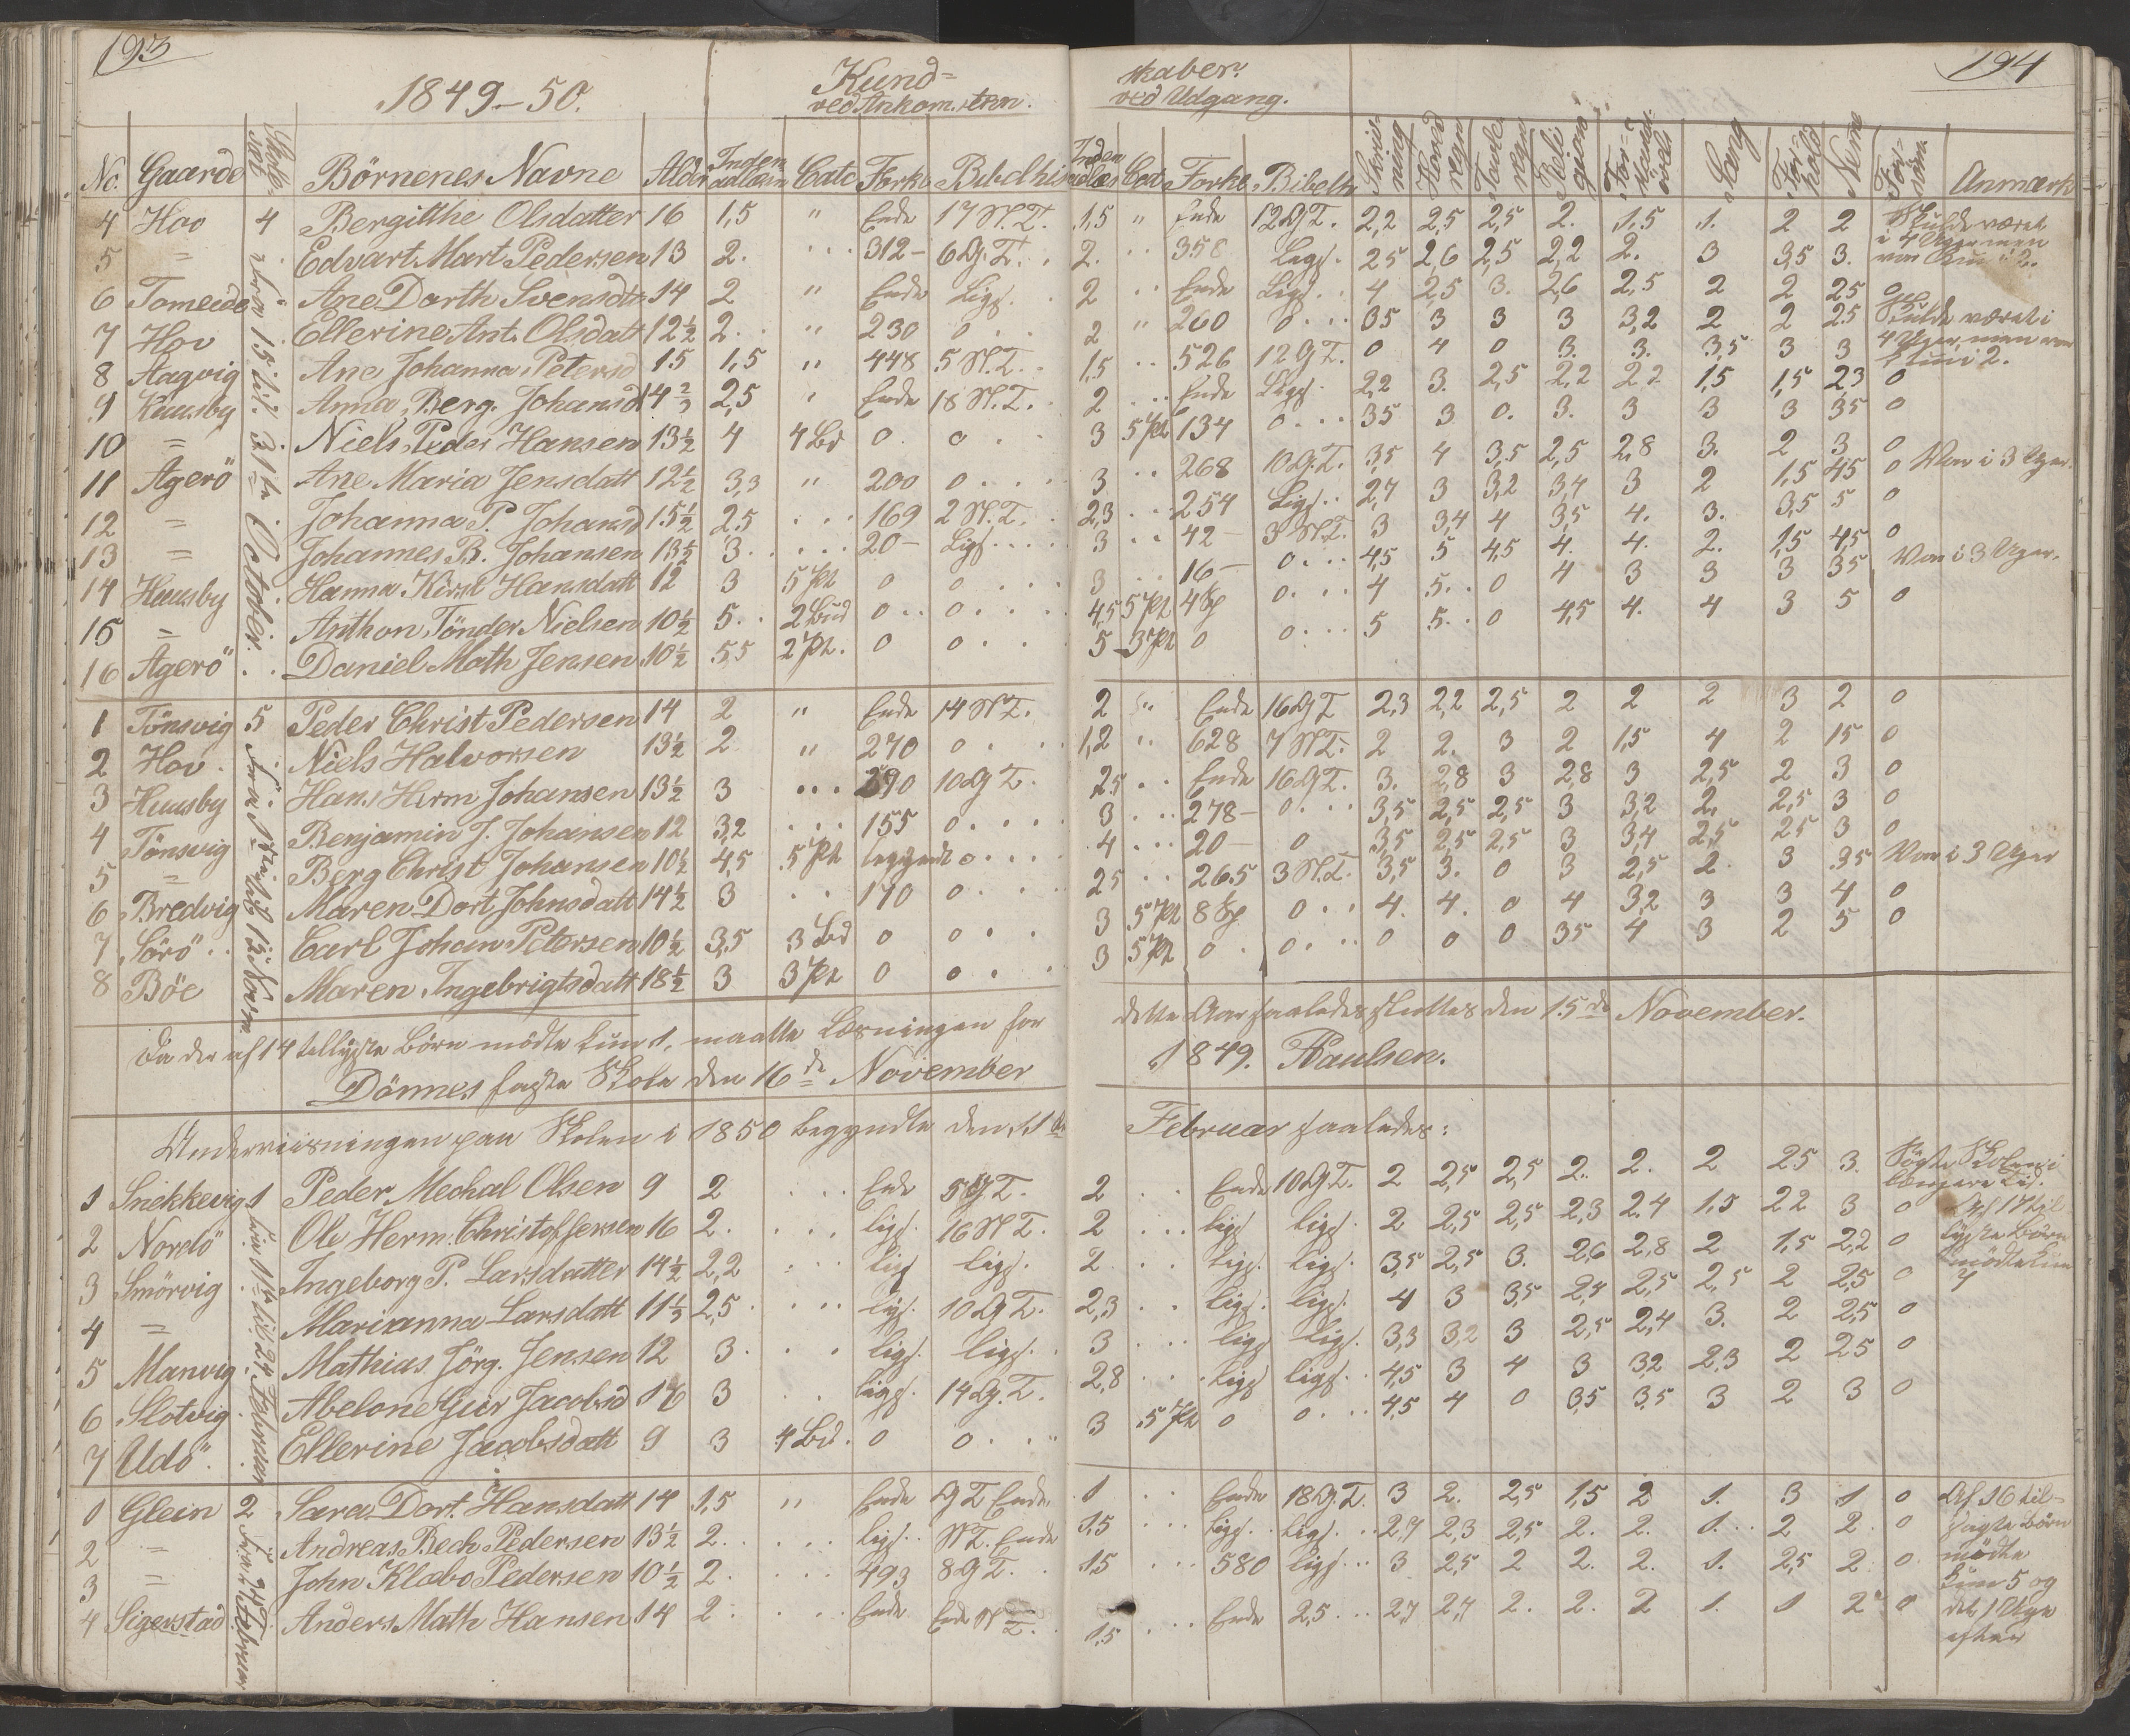 193
1849-50.
Kund=
ved Ankomsten.
No. Gaarde Skolesæt Börnenes Navne Alder Indenadlæsn Catc Forkl Bibelhis
4 Hov 4 Bergitthe Olsdatter 16 1,5 " Ende 17 N.T.
5 = Edvart Mart Pedersen 13 2. . . 312- 6 G.T.
6 Tomeide Ane Dorth Svensdtr 14 2 " Ende Ligs.
7 Hov Ellerine Ant. Olsdatt 12½ 2. . " 230 0 . .
8 Aagvig Ane Johanna Petersd 15 1,5 " 448 5 N.T.
9 Huusby Anna Berg. Johansd 14 2/3 2,5 " Ende 18 N.T.
10 = Niels Peder Hansen 13½ 4 4 Bd 0. 0 . .
11 Agerö Ane Maria Jensdatt 12½ 3,3 " 200 0 . . .
12 = Johanna P. Johansd 15½ 2,5 . . . 169 2 N.T.
13 = Johannes B. Johansen 13½ 3. . . . . 20- Ligs. . . .
14 Huusby Hanna Kirst Hansdatt 12 3 5 Pt 0 0 . . .
15 = Anthon Tönder Nielsen 10½ 5. . 2 Bud 0 . . 0 . . .
16 Agerö Daniel Math Jensen 10½ 5,5 2 Pt. 0 0 . . .
fra 15 til 31te October.
1 Tönsvig 5 Peder Christ Pedersen 14 2 " Ende 14 N T.
2 Hov. Niels Halvorsen 13½ 2 " 270 0 . .
3 Huusby Hans Herm Johansen 13½ 3 . . . 590 10 G T.
4 Tönsvig Benjamin J. Johansen 12 3,2 . . . 155 0 . . .
5 = Berg Christ Johansen 10½ 4,5 5 Pt begyndt 0 . . .
6 Bredvig Maren Dort Johnsdatt 14½ 3 . . 170 0 . . .
7 Sörö . . Carl Johan Petersen 10½ 3,5 3 Bd 0 0 . .
8 Böe Maren Ingebrigtsdatt 18½ 3 3 Pt 0 0 . .
fra 1ste til 15 Novem
Da der af 14 tillyste Börn mödte kun 1, maatte Læsningen for
Dönnes faste Skole den 16de November
Underviisningen paa Skolen i 1850 begyndte den 11te
1 Snekkevig 1 Peder Mechal Olsen 9 2 . . . Ende 5 G T.
2 Nordö Ole Herm. Christoffersen 16 2. . . . ligs. 16 N T.
3 Smörvig Ingeborg P. Larsdatter 14½ 2,2 . . . lig ligs.
4 = Marianna Larsdatt 11⅓ 2,5 . . . . ligs. 10 G T.
5 Manvig. Mathias Jörg. Jensen 12 3. . . ligs. ligs. .
6 Slotvig. Abelone Geir Jacobsd 16 3 . . ligs. 14 G. T.
7 Udö. Ellerine Jacobsdatt 9 3 4 Bd. 0 0 . .
1 Glein 2 Sara Dort. Hansdatt 14 1,5 " Ende G T Ende.
2 = Andreas Bech Pedersen 13½ 2. . . . . ligs. . N T. Ende
3 = John Klæbo Pedersen 10½ 2. . . . . 493 8 G T.
4 Sigerstad Anders Math Hansen 14 2. . . . Ende Ende N T.
194
skaber.
ved Udgang.
Indenadlæs Cat Forkl Bibelh Skrivning Hovedregn Tavleregn Religion Forstandsövels Sang Forhold Nem Forsöm Anmærk
1,5 " Ende 12 G T. 2,2 2,5 2,5 2. 1,5 1. 2 2 Skulde været
2. . . 358 Ligs. 25 2,6 2,5 2,2 2. 3 3,5 3. i 4 Uger men var kun i 2.
2 . . Ende Ligs. . 4 2,5 3. 2,6 2,5 2 2 25 0
2 " 260 0 . . . 35 3 3 3 3,2 2 2 25 Skulde været i
1,5 . . 526 12 G T. 0 4 0 3. 3. 3,5 3 3 4 Uger, men var kun i 2.
2 . . . Ende Ligs. 2,2 3. 2,5 2,2 2,2 1,5 1,5 2,3 0
3 5 Pt 134 0 . . . 35 3 0. 3. 3 3 3 35 0
3 . . 268 10 G. T. 3,5 4 3,5 2,5 2,8 3. 2 3 0 Var i 3 Uger.
2,3 . . . 254 Ligs. . 2,7 3 3,2 3,4 3 2 1,5 45 0
3 . . 42 - 3 N T. 3 3,4 4 3,5 4. 3. 3,5 5 0
3 . . 16 - 0 . . . 4,5 5 4,5 4. 4. 2. 1,5 4,5 0
4,5 5 Pt 4 Sp 0 . . . 4 5. . 0 4 3 3 3 35 Var i 3 Uger.
5 3 Pt 0 0 . . . 5 5. . 0 4,5 4. 4 3 5 0
2 " Ende 16 G T 2,3 2,2 2,5 2 2 2 3 2 0
1,2 " 628 7 N T. 2 2. 3 2 1,5 4 2 15 0
25 . . Ende 16 G T. 3. 2,8 3 2,8 3 2,5 2 3 0
3 . . . 278 - 0 . . . 3,5 2,5 2,5 3 3,2 2. 2,5 3 0
4 . . . 20 - 0 3,5 2,5 2,5 3 3,4 2,5 25 3 0
25 . . 265 3 N.T. 3,5 3. 0 3 2,5 2. 3 35 Var i 3 Uger
3 5 Pt 8 Sp 0 . . . 4. 4. 0 4 3,2 3 3 4 0
3 5 Pt 0 . 0 . . . 0 0 0 35 4 3 2 5 0
dette Aar saaledes sluttes den 15de November.
1849. Paulsen.
Februar saaledes:
2 . . Ende 10 G T. 2 2,5 2,5 2. 2. 2 25 3. Sögte Skolen i længere Tid.
2 . . . ligs ligs. 2 2,5 2,5 2,3 2,4 1,5 22 3 0 Af 17 til
2 . . . ligs. ligs. 3,5 2,5 3. 2,6 2,8 2 1,5 2,2 0 lyste Börn
2,3 . . ligs. ligs. 4 3 3,5 2,5 2,5 2,5 2 2,5 0 mödte kun 7
3 . . . ligs ligs. 3,3 3,2 3 2,5 2,4 3. 2 2,5 0
2,8 . . . ligs ligs. . 4,5 3 4 3 3,2 2,3 2 25 0
3 5 Pt 0 0 . . . 4,5 4 0 3,5 3,5 3 2 3 0
1 . . Ende 18 G. T. 3 2. 2,5 1,5 2 1. 3 1 0 Af 16 til-
1,5 . . . ligs. . ligs. . . 2,7 2,3 2,5 2. 2. 1. . . 2 2. 0 sagte Börn
15 . . . 580 ligs. . . 3 2,5 2 2. 2. 1. 2,5 2. 0 mödte kun 5 og
1,5 . . . Ende 2,5 . . . 2,7 2,7 2. 2. 2 1. 1 2 0 det 1 Uge efter